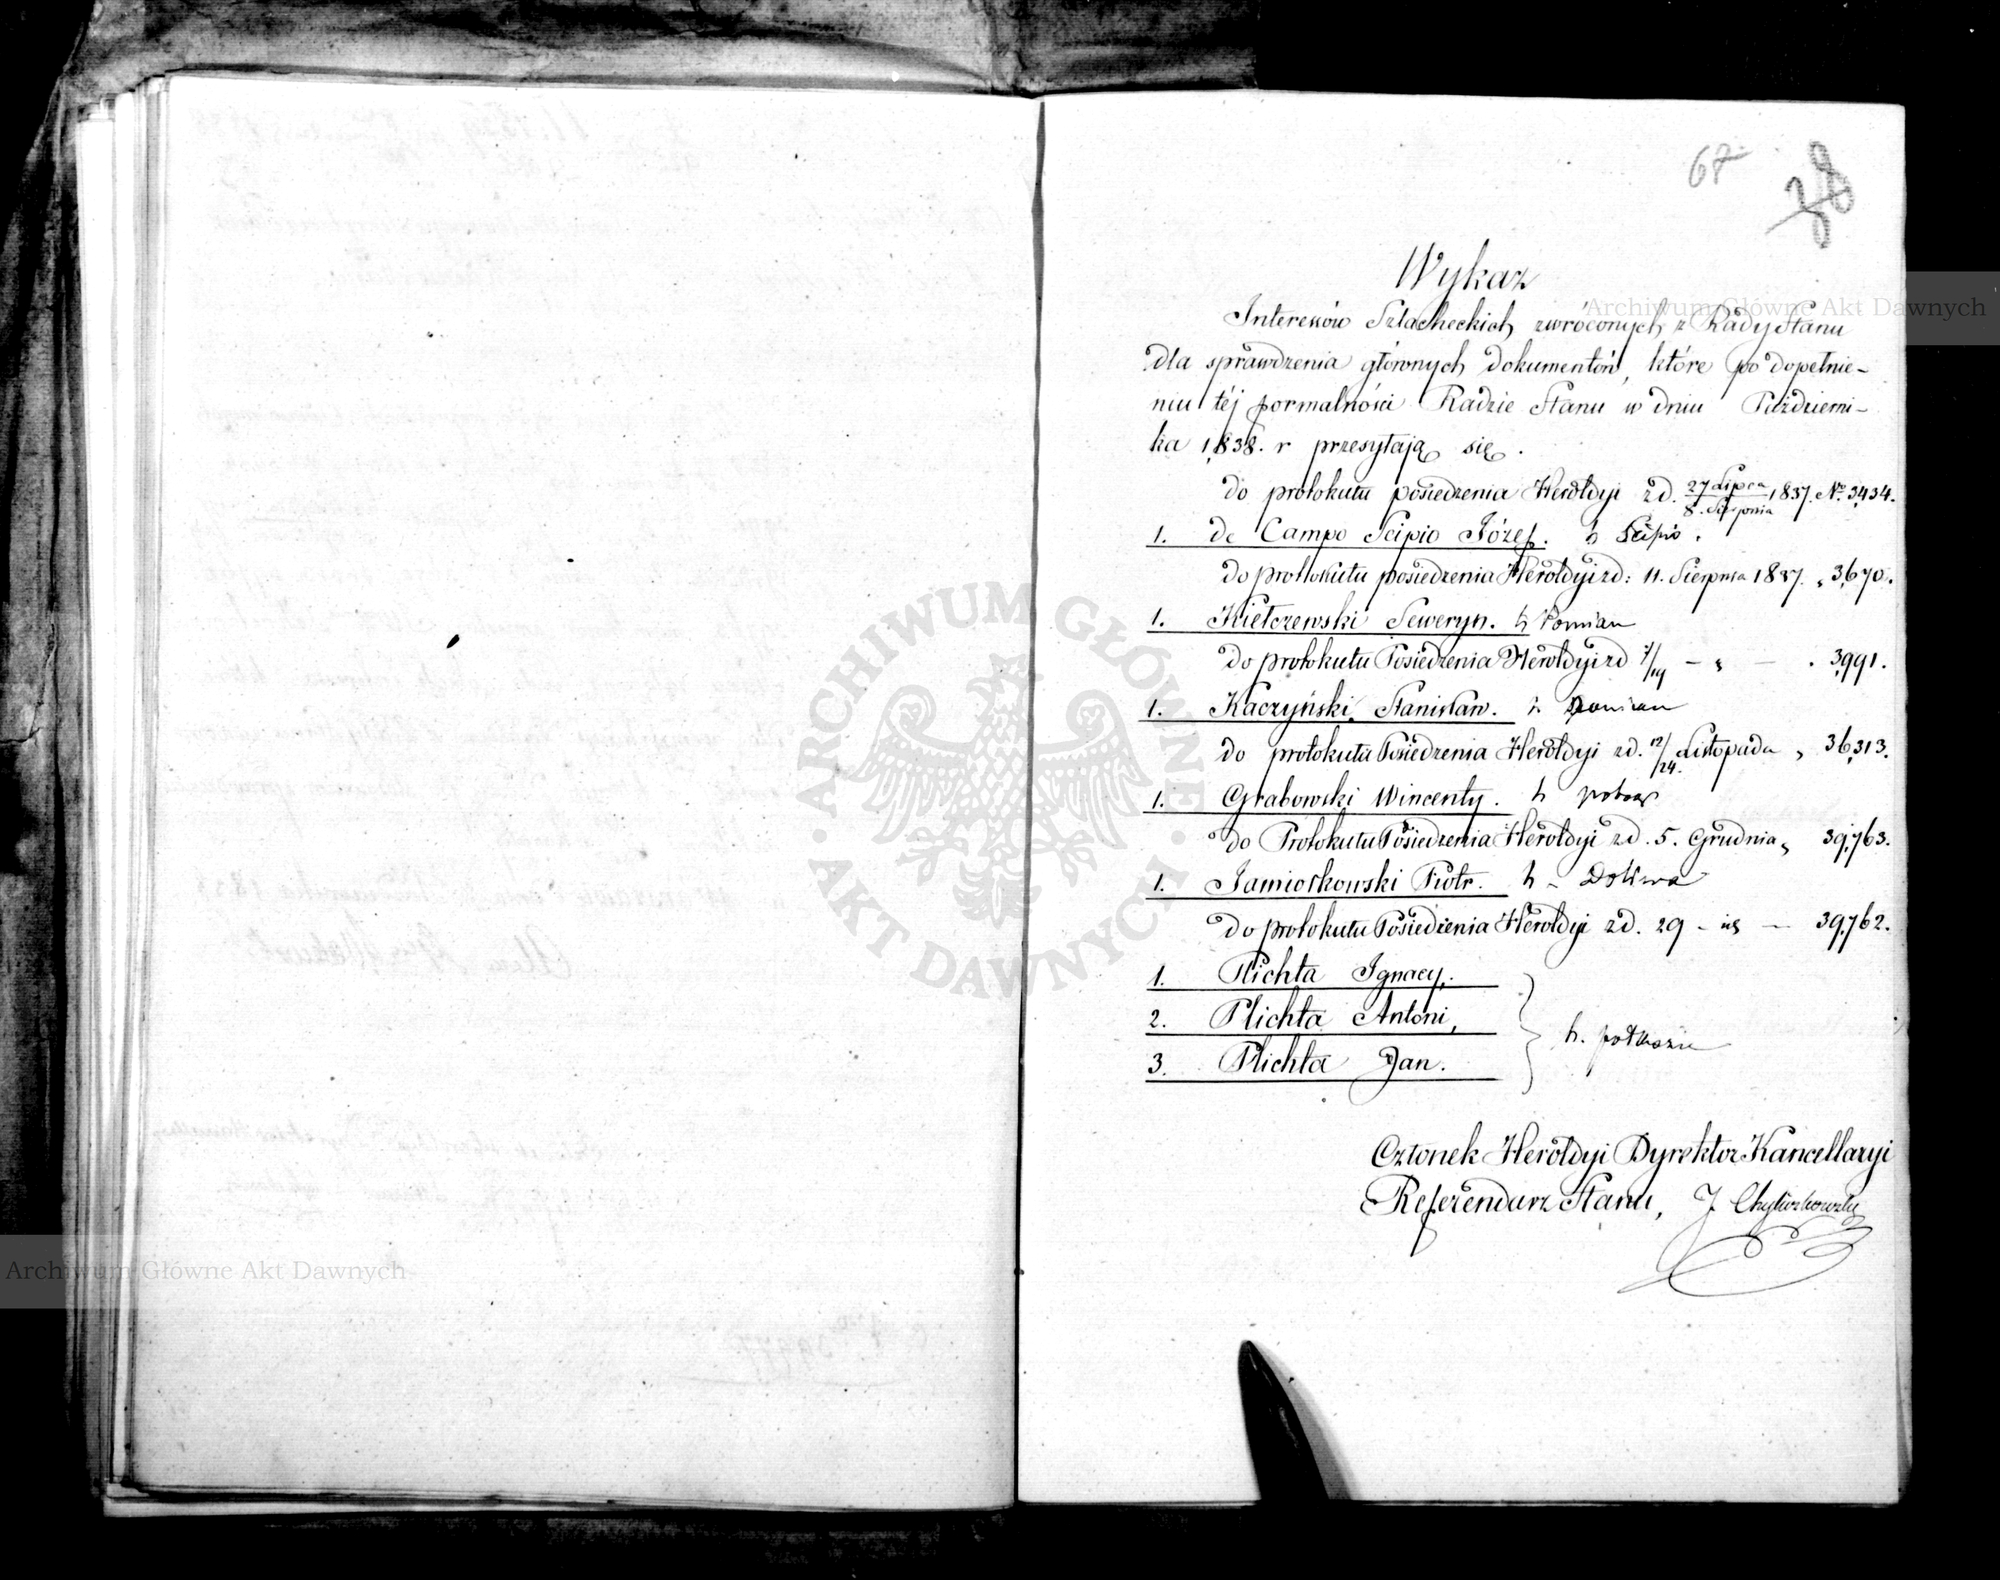 67
38
Wykaz
Interessów Szlacheckich zwróconych z Rady Stanu
dla sprawdzenia głównych dokumentów, które po dopełnie-
niu téj formalności Radzie Stanu w dniu Październi-
ka 1838. r przesyłają się.
do protokułu posiedzenia Heroldyi z d. 27 Lipca / 8. Sierpnia 1837. No. 3434.
1. de Campo Scipio Józef. h Scipio.
do protokułu posiedzenia Heroldyi z d: 11. Sierpnia 1837. „ 3,670.
1. Kiełczewski Seweryn. h Pomian
do protokułu Posiedzenia Heroldyi z d 7/19 — „ — . 3,991.
1. Kaczyński Stanisław. h Pomian
do protokułu Posiedzenia Heroldyi z d. 12/24. Listopada „ 36,313.
1. Grabowski Wincenty. h
do Protokułu Posiedzenia Heroldyi z d. 5. Grudnia „ 39,763.
1. Jamiołkowski Piotr. h - Doliwa
do protokułu Posiedzenia Heroldyi z d. 29 - — 39,762.
1. Plichta Ignacy,
2. Plichta Antoni,
3. Plichta Jan.
h. półkozic
Członek Heroldyi Dyrektor Kancellaryi
Referendarz Stanu, J.
Archiwum Główne Akt Dawnych
Archiwum Główne Akt Dawnych
ARCHIWUM GŁÓWNE · AKT DAWNYCH ·